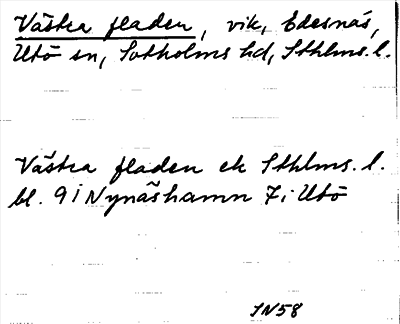 Västra fladen, vik, Edesnäs,
Utö sn, Sotholms hd, Sthlms. l.
Västra fladen ek Sthlms. l.
bl. 9 i Nynäshamn 7 i Utö
IN58